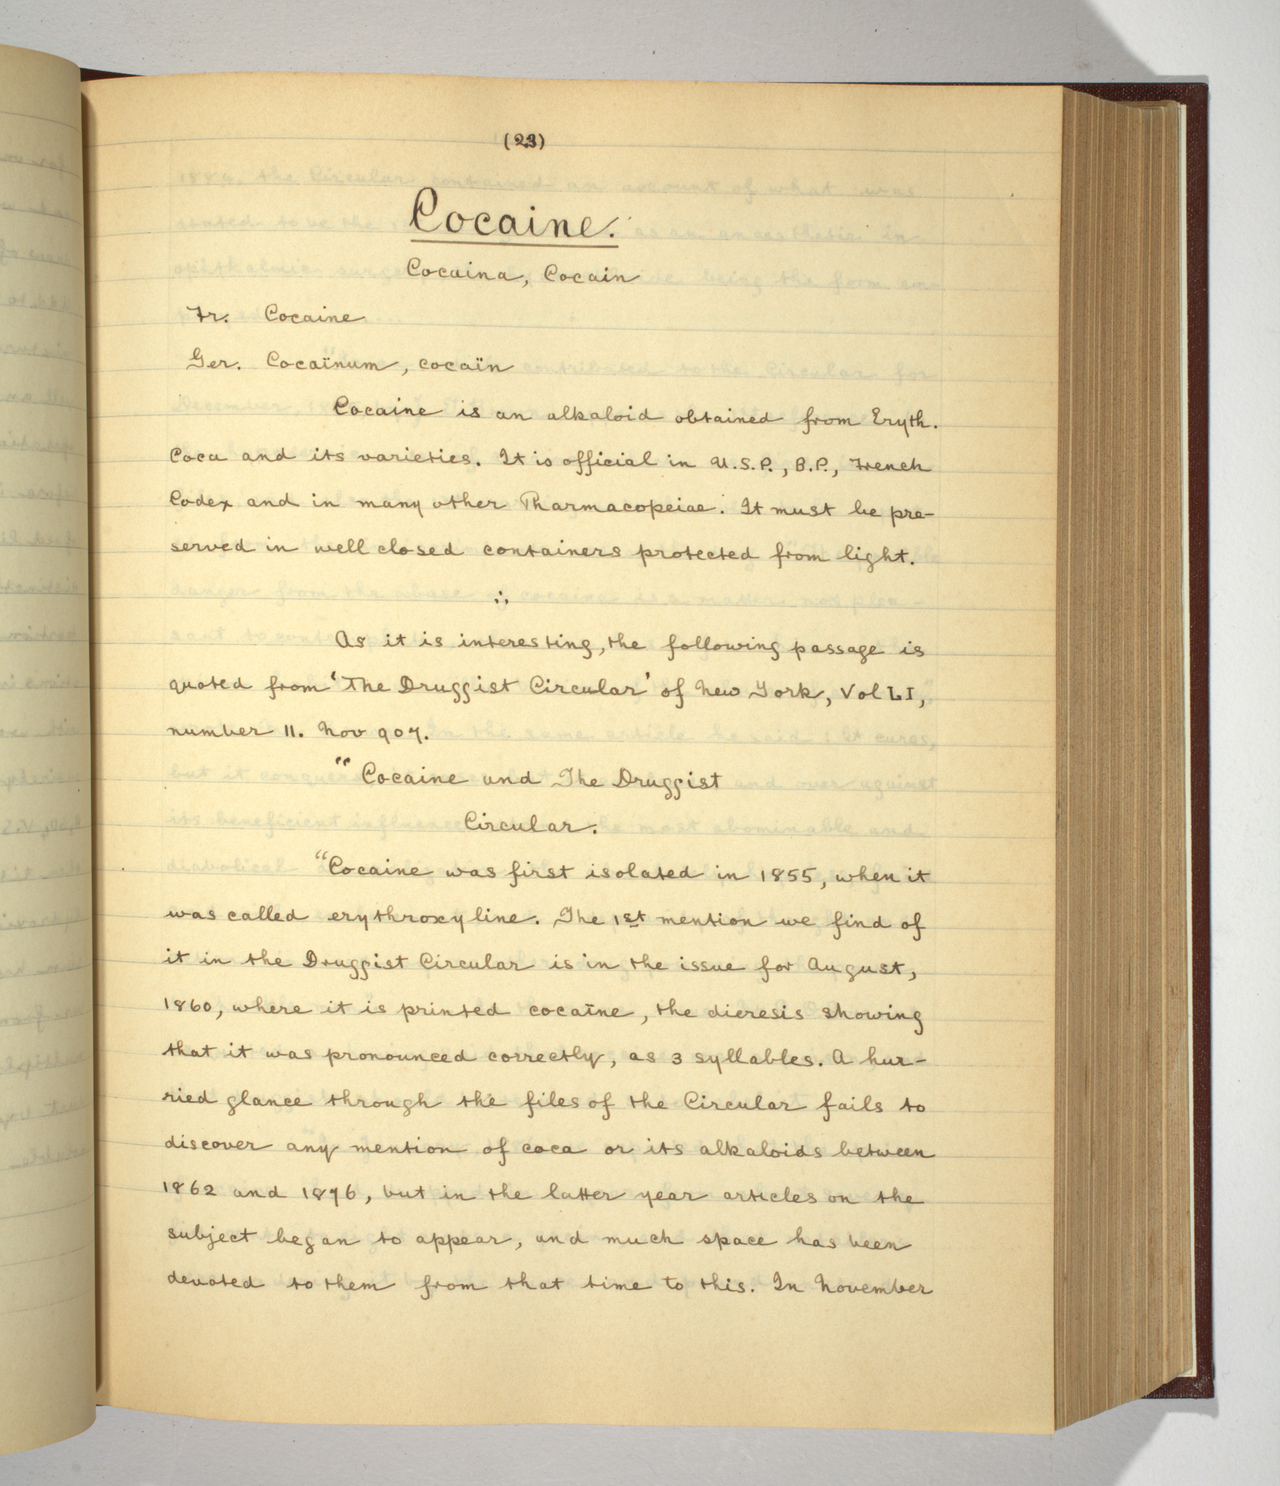 (23)
Cocaine.
Cocaina, Cocain
Fr. Cocaine
Ger. Cocaïnum, cocaïn
Cocaine is an alkaloid obtained from Eryth.
Coca and its varieties. It is official in U.S.P., B.P., French
Codex and in many other Pharmacopeiae. It must be pre-
served in well closed containers protected from light.
∴
As it is interesting, the following passage is
quoted from 'The Druggist Circular' of New York, Vol LI,
number 11. Nov 907.
"Cocaine and The Druggist
Circular.
"Cocaine was first isolated in 1855, when it
was called erythroxyline. The 1st mention we find of
it in the Druggist Circular is in the issue for August,
1860, where it is printed cocaïne, the dieresis showing
that it was pronounced correctly, as 3 syllables. A hur-
ried glance through the files of the Circular fails to
discover any mention of coca or its alkaloids between
1862 and 1876, but in the latter year articles on the
subject began to appear, and much space has been
devoted to them from that time to this. In November